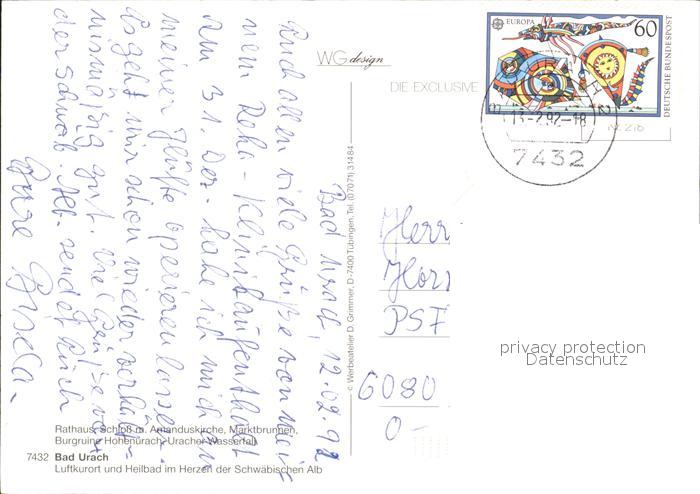 WG design
DIE EXCLUSIVE
EUROPA
60
DEUTSCHE BUNDESPOST
13.-2.92-18
7432
Bad Urach, 12.02.92
Euch allen viele Grüße von mei-
nem Reha-Klinikaufenthalt
Am 31. Dez. habe ich mich an
meiner Hüfte operieren lassen.
Es geht mir schon wieder verhält-
nismäßig gut. Viel Grüße von
der Schwäb. Alb. sendet Euch
Eure Gisela.
© Werbeatelier D. Grimmer, D-7400 Tübingen, Tel. (07071) 31484
Herr
PSF
6080
0-
privacy protection
Datenschutz
Rathaus, Schloß m. Amanduskirche, Marktbrunnen,
Burgruine Hohenurach, Uracher Wasserfall
7432 Bad Urach
Luftkurort und Heilbad im Herzen der Schwäbischen Alb